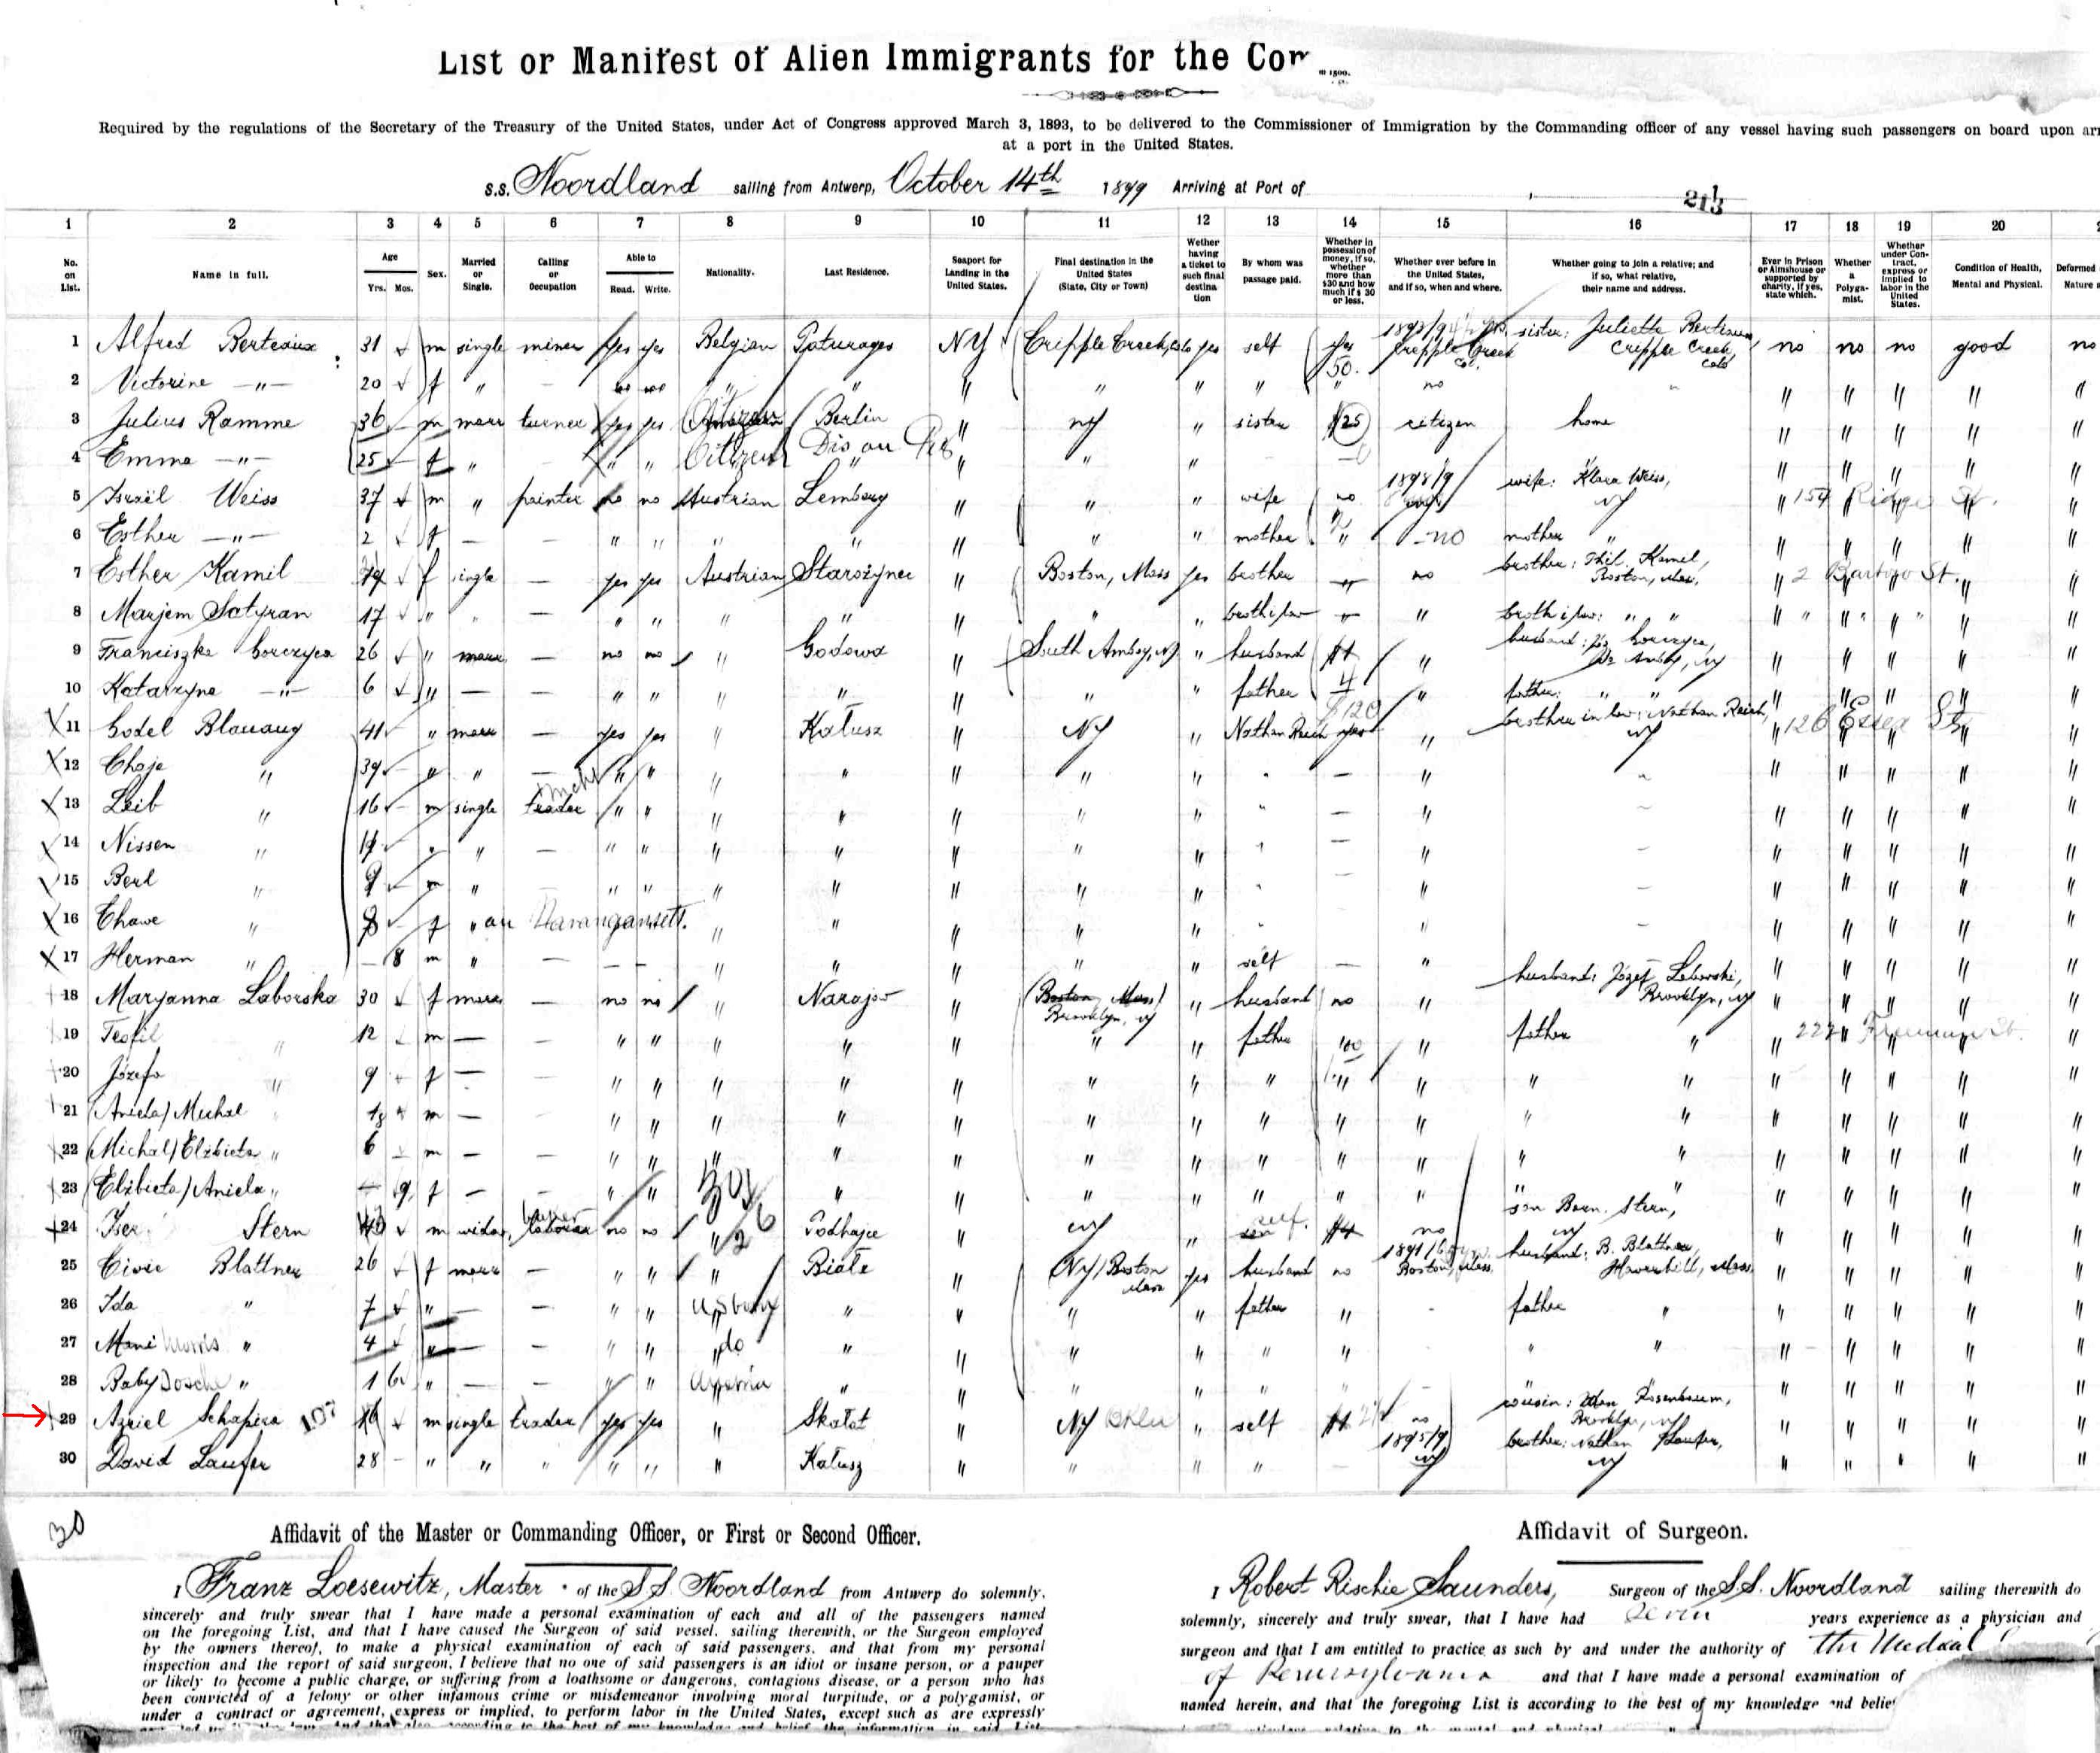 List or Manifest of Alien Immigrants for the Com
Required by the regulations of the Secretary of the Treasury of the United States, under Act of Congress approved March 3, 1893, to be delivered to the Commissioner of Immigration by the Commanding officer of any vessel having such passengers on board upon arr
at a port in the United States.
S.S. Noordland sailing from Antwerp, October 14th 1899 Arriving at Port of
213
1 2 3 4 5 6 7 8 9 10 11 12 13 14 15 16 17 18 19 20
No. on List. Name in full. Age Yrs. Mos. Sex. Married or Single. Calling or Occupation Able to Read. Write. Nationality. Last Residence. Seaport for Landing in the United States. Final destination in the United States (State, City or Town) Wether having a ticket to such final destina tion By whom was passage paid. Whether in possession of money, if so, whether more than $30 and how much if $ 30 or less. Whether ever before in the United States, and if so, when and where. Whether going to join a relative; and if so, what relative, their name and address. Ever in Prison or Almshouse or supported by charity, if yes, state which. Whether a Polyga-mist. Whether under Con-tract, express or implied to labor in the United States. Condition of Health, Mental and Physical. Deformed Nature
1 Alfred Berteaux 31 m single miner yes yes Belgian Paturages NY Cripple Creek, Colo yes self yes 50. Cripple Creek Col. sister: Juliette Berteaux, Cripple Creek, Colo no no no good no
2 Victorine —"— 20 f " — no no " " " " " " " no " " " " "
3 Julius Ramme 36 m marr turner yes yes Berlin " NY " sister $25 citizen home " " " " "
4 Emma —"— 25 f " — " " Citizen " " " " " " " " "
5 Israël Weiss 37 m " painter no no Austrian Lemberg " " " wife no 1898/9 wife: Klara Weiss, NY " 154 Ridge St.
6 Esther —"— 2 f — — " " " " " " " mother " no mother " " " " " "
7 Esther Kamil f single — yes yes Austrian Starozynce " Boston, Mass yes brother — no brother: Phil. Kamil, Boston, Mass. " 2 St.
8 Marjem Satyran 17 " " — " " " " " " " broth i/law — " broth i/law: " " " " " " "
9 Franciszka Gorczyca 26 " marr — no no " Godowa " South Amboy, NJ " husband $1 " husband: Amboy, NJ " " " " "
10 Katarzyna —"— 6 " — — " " " " " " " father " father: " " " " " " "
11 Godel Blauaug 41 " marr — yes yes " Kalusz " NY " Nathan Reich yes $120 " brother in law: Nathan Reich, NY " 126 Essex St.
12 Chaje " 39 " " — " " " " " " " " — " " " " " "
13 Leib " 16 m single trader " " " " " " " " — " " " " " "
14 Nissen " " " — " " " " " " " " — " — " " " " "
15 Berl " 9 m " — " " " " " " " " — " — " " " " "
16 Chawe " 8 f " au Narangansett. " " " " " " — " — " " " " "
17 Herman " — 8 m " — — — " " " " " self — " " " " " "
18 Maryanna Laborska 30 f marr — no no " Narajow " (Boston Mass) Brooklyn, NY " husband no " husband: Józef Laborski, Brooklyn, NY " " " " "
19 Teofil " 12 m — — " " " " " " " father 100 " father " " 227 Freeman St.
20 Józefa " 9 f — — " " " " " " " " " " " " " " " " "
21 (Aniela) Michal m — " " " " " " " " " " " " " " " " "
22 (Michal) Elzbieta " 6 m — — " " " " " " " " " " " " " " " " "
23 (Elzbieta) Aniela " 9 f — — " " " " " " " " " " " " " " " "
24 Iser Stern 40 m widow. laborer no no " Podhajce NY " self. $4 no son Stern, NY " " " " "
25 Civie Blattner 26 f marr — " " " Biała " NY / Boston Mass yes husband no Boston, Mass. husband: B. Blattner, Haverhill, Mass. " " " " "
26 Ida " 7 " — — " " " " " " father " - father " " " " " "
27 Mani Morris " 4 " — — " " do " " " " " " " " " " " " "
28 Baby " 1 6 " — — " " " " " " " " " " " " " " "
29 Azriel Schapira 107 16 m single trader yes yes " Skalat " NY " self no cousin: Rosenbaum, Brooklyn, NY " " " " "
30 David Laufer 28 - " " " " " " Kalusz " " " " — 1895/9 NY brother: Nathan Laufer, NY " " " " "
30
Affidavit of the Master or Commanding Officer, or First or Second Officer.
I Franz Loesewitz, Master of the S.S. Noordland from Antwerp do solemnly,
sincerely and truly swear that I have made a personal examination of each and all of the passengers named
on the foregoing List, and that I have caused the Surgeon of said vessel. sailing therewith, or the Surgeon employed
by the owners thereof, to make a physical examination of each of said passengers, and that from my personal
inspection and the report of said surgeon, I believe that no one of said passengers is an idiot or insane person, or a pauper
or likely to become a public charge, or suffering from a loathsome or dangerous, contagious disease, or a person who has
been convicted of a felony or other infamous crime or misdemeanor involving moral turpitude, or a polygamist, or
under a contract or agreement, express or implied, to perform labor in the United States, except such as are expressly
Affidavit of Surgeon.
I Robert Rischie Saunders, Surgeon of the S.S. Noordland sailing therewith do
solemnly, sincerely and truly swear, that I have had seven years experience as a physician and
surgeon and that I am entitled to practice as such by and under the authority of the Medical
of Pennsylvania and that I have made a personal examination of
named herein, and that the foregoing List is according to the best of my knowledge and belief